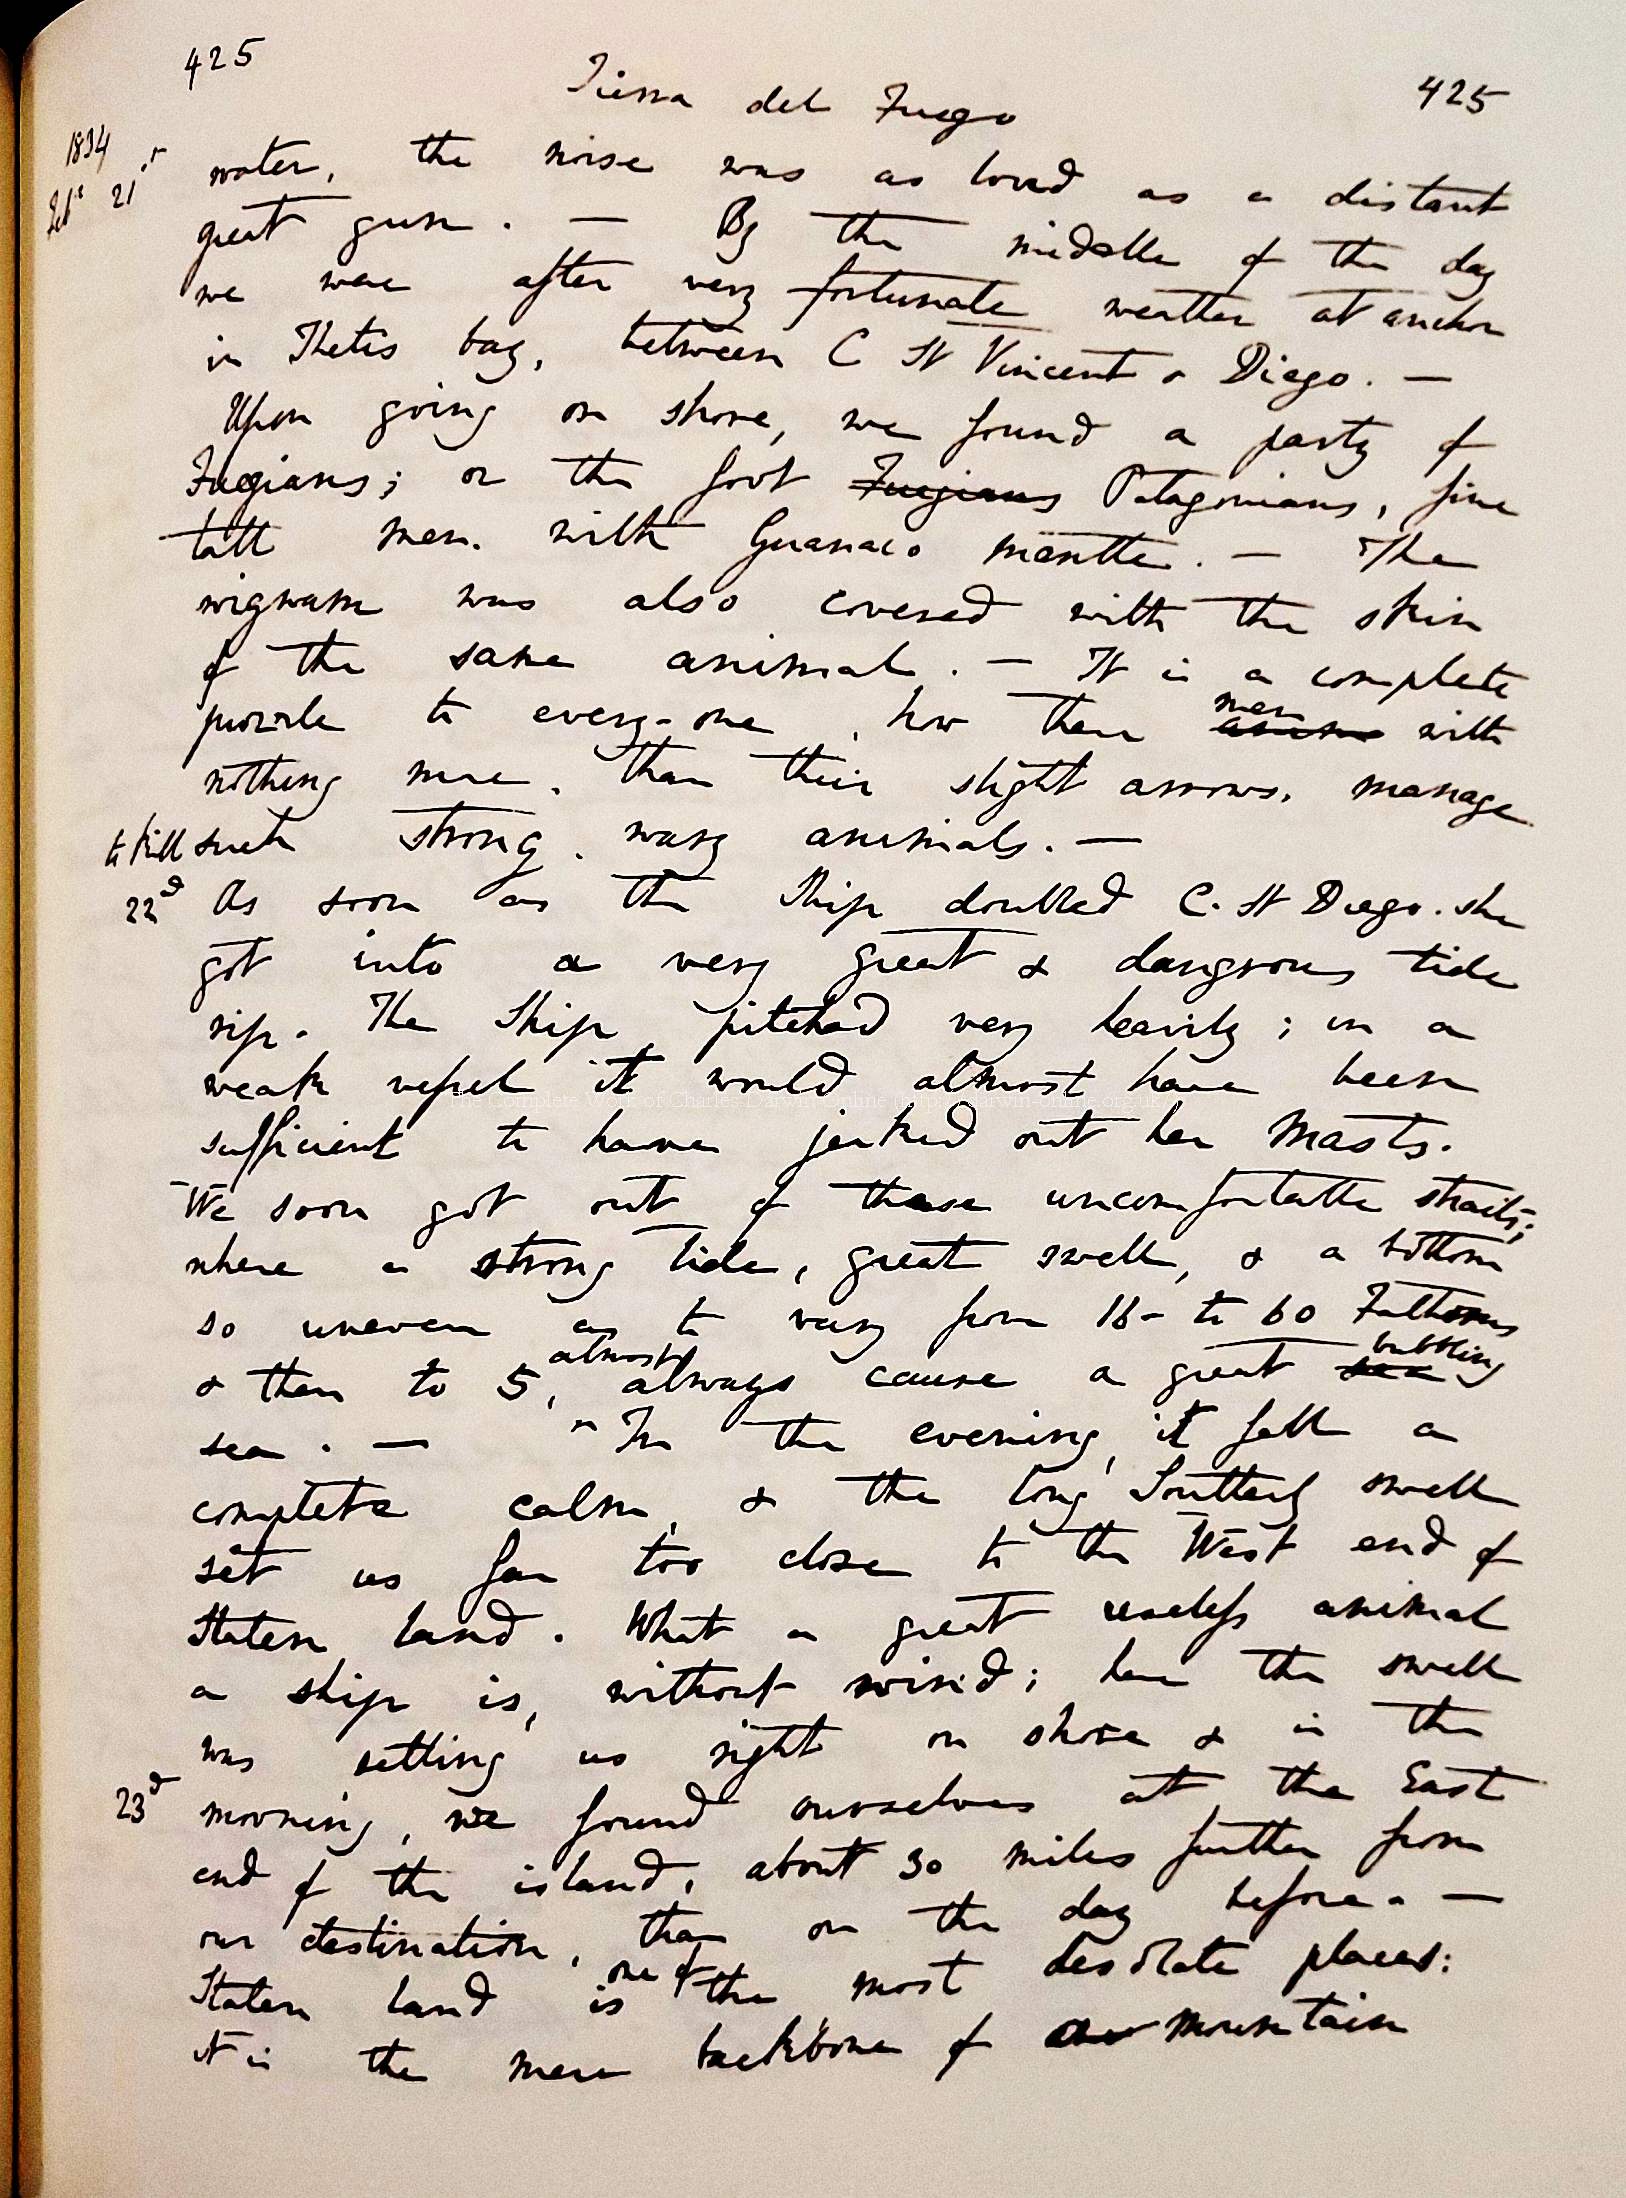 425
Tierra del Fuego
425
1834
Feb. 21st
water, the noise was as loud as a distant
great gun. — By the middle of the day
we were after very fortunate weather at anchor
in Thetis bay, between C St Vincent & Diego. —
Upon going on shore, we found a party of
Fuegians; or the foot Fuegians Patagonians, fine
tall men. with Guanaco mantle. — The
wigwam was also covered with the skin
of the same animal. — It is a complete
puzzle to every-one, how these men with
nothing more, than their slight arrows, manage
to kill such strong, wary animals. —
22d As soon as the Ship doubled C. St Diego. she
got into a very great & dangerous tide
rip. The Ship pitched very heavily; in a
weak vessel it would almost have been
sufficient to have jerked out her Masts.
We soon got out of these uncomfortable straits;
where a strong tide, great swell, & a bottom
so uneven as to vary from 16- to 60 Fathoms
& then to 5, almost always cause a great sea bubbling
sea. — In the evening it fell a
complete calm, & the long Southerly swell
set us far too close to the West end of
Staten land. What a great useless animal
a ship is, without wind; here the swell
was setting us right on shore & in the
23d morning, we found ourselves at the East
end of the island, about 30 miles further from
our destination, than on the day before. —
Staten land is one of the most desolate places:
it is the mere backbone of mountain
The Complete Work of Charles Darwin Online